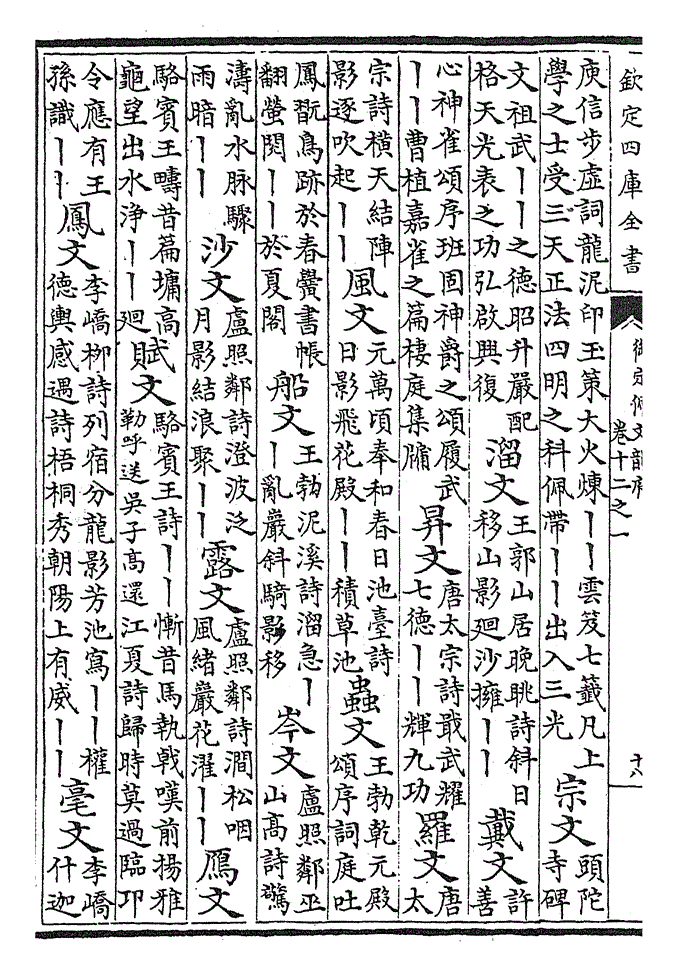 欽定四庫全書
御定佩文韻府 卷十二之一
十八
庾信步虛詞龍泥印玉策大火煉｜｜雲笈七籤凡上
學之士受三天正法四明之科佩帶｜｜出入三光
宗文
頭陀
寺碑
文祖武｜｜之德昭升嚴配
格天光表之功弘啟興復
溜文
王郭山居晚眺詩斜日
移山影廻沙擁｜｜
戴文
許
善
心神雀頌序班固神爵之頌履武
｜｜曹植嘉雀之篇棲庭集牖
昇文
唐太宗詩戢武耀
七德｜｜輝九功
羅文
唐
太
宗詩橫天結陣
影逐吹起｜｜
風文
元萬頃奉和春日池臺詩
日影飛花殿｜｜積草池
蟲文
王勃乾元殿
頌序詞庭吐
鳳翫鳥跡於春黌書帳
翻螢閱｜｜於夏閣
船文
王勃泥溪詩溜急｜
｜亂巖斜騎影移
岑文
盧照鄰巫
山高詩驚
濤亂水脉驟
雨暗｜｜
沙文
盧照鄰詩澄波泛
月影結浪聚｜｜
露文
盧照鄰詩澗松咽
風緒巖花濯｜｜
鴈文
駱賓王疇昔篇墉高
龜望出水淨｜｜廻
賦文
駱賓王詩｜｜慚昔馬執戟嘆前揚雅
勒呼送吳子高還江夏詩歸時莫過臨邛
令應有王
孫識｜｜
鳳文
李嶠柳詩列宿分龍影芳池寫｜｜權
德輿感遇詩梧桐秀朝陽上有威｜｜
毫文
李嶠
什迦